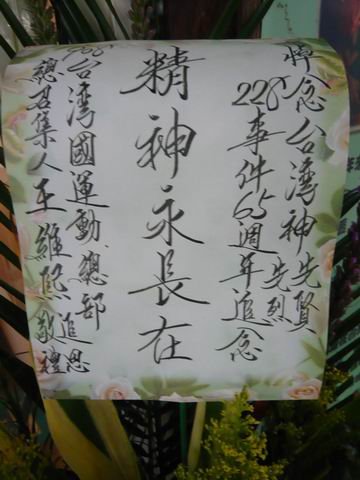 悼念台湾神先賢先烈
228事件65週年追念
精神永長在
908台湾國運動總部
總召集人王維熙敬禮追思